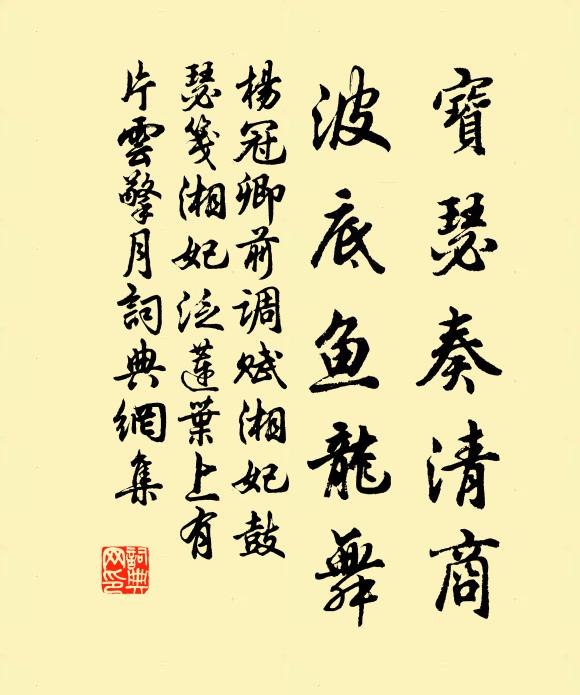 寶瑟奏清商
波底鱼龍舞
楊冠卿前调赋湘妃鼓
瑟箋湘妃泛蓮葉上有
片雲擎月詞典網集
詞典网印